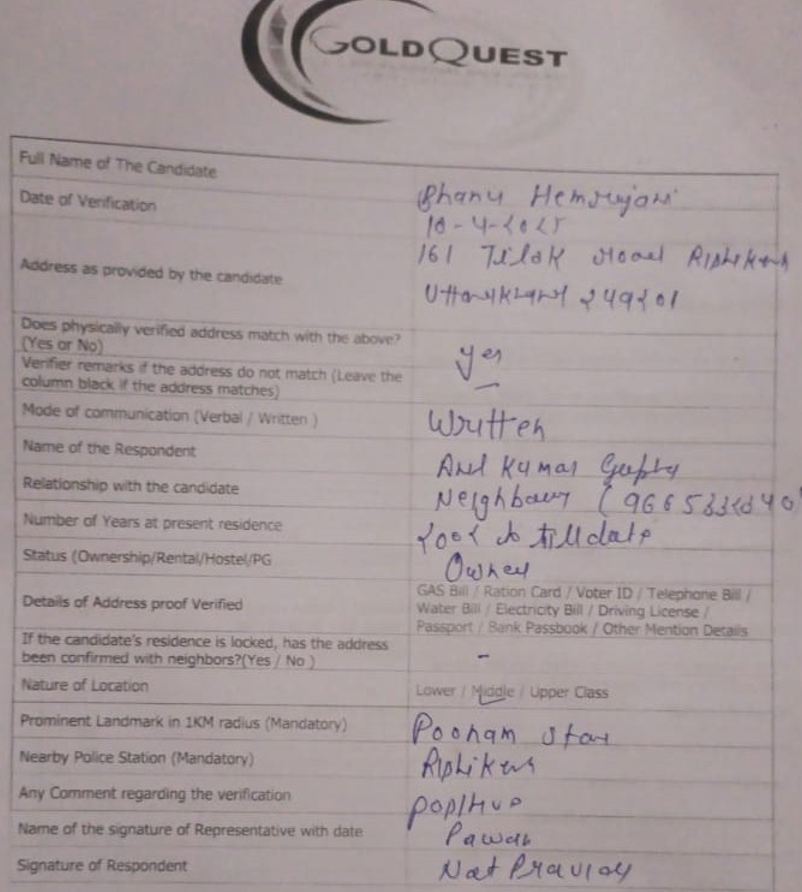 GOLDQUEST
Full Name of The Candidate
Bhanu Hemrajani
Date of Verification
10-4-2025
Address as provided by the candidate
161 Tilak road Rishikesh
Uttarakhand 249201
Does physically verified address match with the above?
(Yes or No)
Yes
Verifier remarks if the address do not match (Leave the
column black if the address matches)
—
Mode of communication (Verbal / Written )
Written
Name of the Respondent
Anil Kumar Gupta
Relationship with the candidate
Neighbour
Number of Years at present residence
2002 to till date
Status (Ownership/Rental/Hostel/PG
Owner
Details of Address proof Verified
GAS Bill / Ration Card / Voter ID / Telephone Bill /
Water Bill / Electricity Bill / Driving License /
Passport / Bank Passbook / Other Mention Details
If the candidate's residence is locked, has the address
been confirmed with neighbors?(Yes / No )
-
Nature of Location
Lower / Middle / Upper Class
Prominent Landmark in 1KM radius (Mandatory)
Poonam Star
Nearby Police Station (Mandatory)
Rishikesh
Any Comment regarding the verification
positive
Name of the signature of Representative with date
Pawan
Signature of Respondent
Not